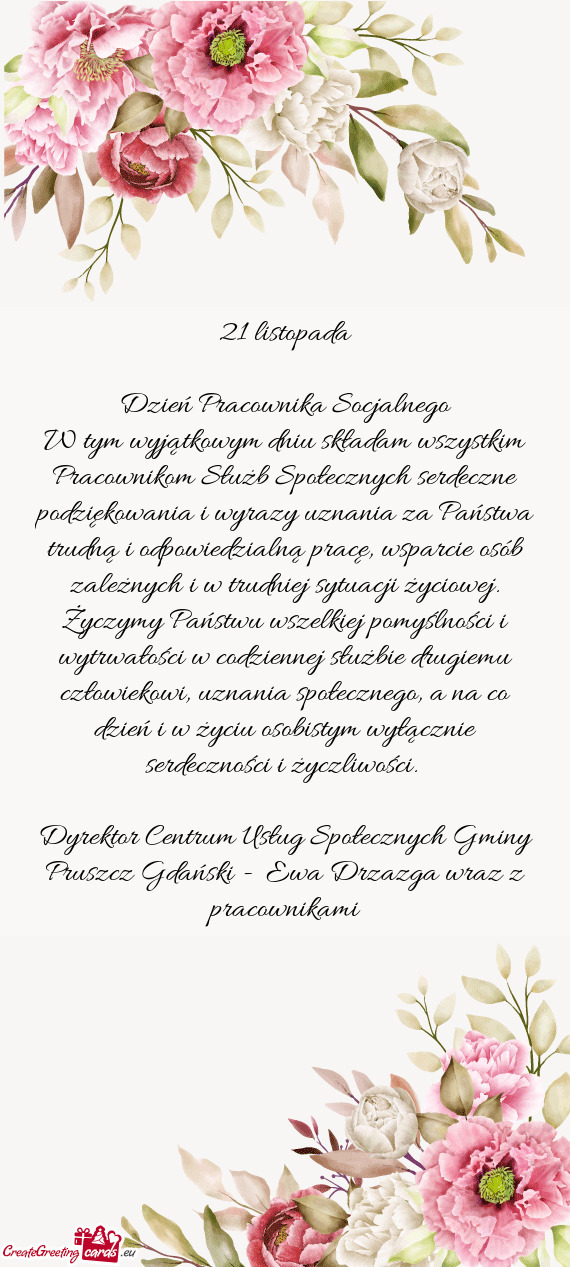 21 listopada
Dzień Pracownika Socjalnego
W tym wyjątkowym dniu składam wszystkim
Pracownikom Służb Społecznych serdeczne
podziękowania i wyrazy uznania za Państwa
trudną i odpowiedzialną pracę, wsparcie osób
zależnych i w trudniej sytuacji życiowej.
Życzymy Państwu wszelkiej pomyślności i
wytrwałości w codziennej służbie drugiemu
człowiekowi, uznania społecznego, a na co
dzień i w życiu osobistym wyłącznie
serdeczności i życzliwości.
Dyrektor Centrum Usług Społecznych Gminy
Pruszcz Gdański - Ewa Drzazga wraz z
pracownikami
CreateGreeting cards .eu